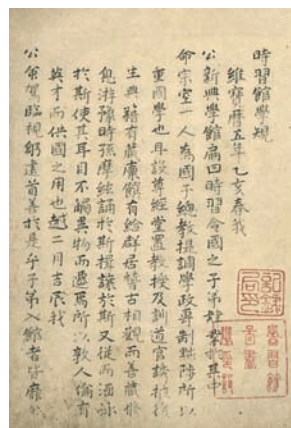 時習館學規
維寶暦五年乙亥春我
公新興學館扁曰時習令國之子弟肄學於其中
命宗室一人為國子總教提調學政專制黜陟所以
重國學也且設尊經堂置教授及訓導官
生典籍有藏廩餼有給群居
游豫時孫摩絃誦於斯揖讓於斯又從而
於斯使其耳目不觸異物而遷焉所以敦人倫育
英才而供國之用也越二月吉辰我
公命駕臨視仍遣首善於是乎子弟入館者皆